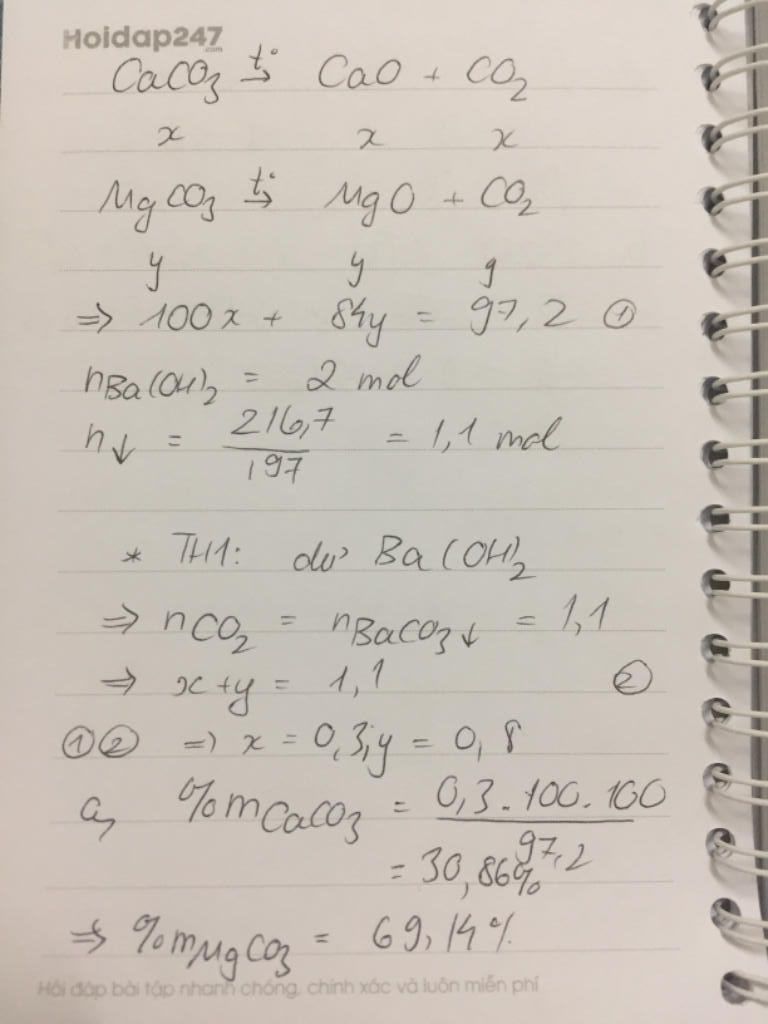 Hoidap247
.com
CaCO₃ t° → CaO + CO₂
x x x
MgCO₃ t° → MgO + CO₂
y y y
⇒ 100x + 84y = 97,2 ①
nBa(OH)₂ = 2 mol
n↓ = 216,7 / 197 = 1,1 mol
* TH1: dư Ba(OH)₂
⇒ nCO₂ = nBaCO₃↓ = 1,1
⇒ x+y = 1,1 ②
①② ⇒ x = 0,3; y = 0,8
a, %mCaCO₃ = 0,3.100.100 / 97,2
= 30,86%
⇒ %mMgCO₃ = 69,14%
Hỏi đáp bài tập nhanh chóng, chính xác và luôn miễn phí